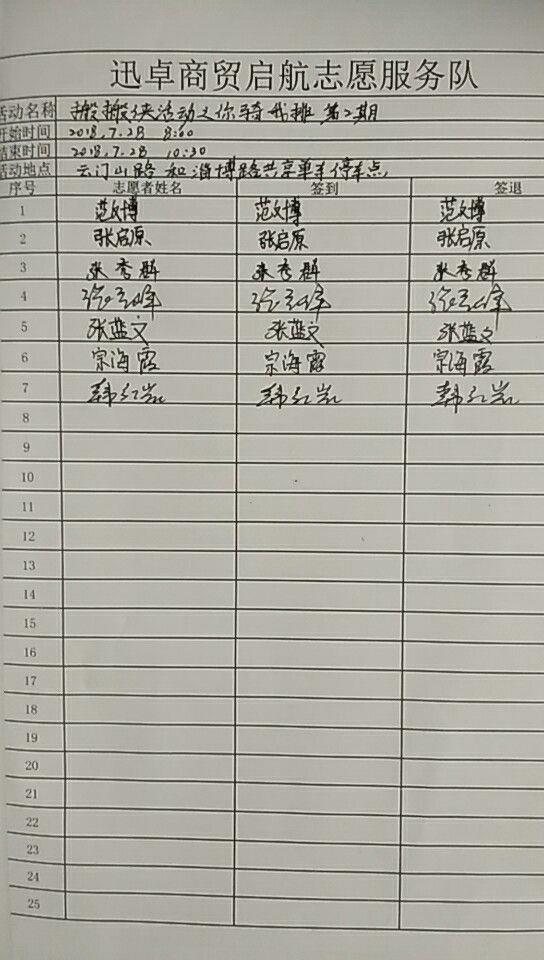 迅卓商贸启航志愿服务队
活动名称 搬搬侠活动之你骑我排 第2期
开始时间 2018.7.28 8:00
结束时间 2018.7.28 10:30
活动地点 云门山路 和 淄博路共享单车停车点
序号 志愿者姓名 签到 签退
1 范文博 范文博 范文博
2 张启原 张启原 张启原
3 张秀群 张秀群 张秀群
4
5 张蓝文 张蓝文 张蓝文
6 宗海霞 宗海霞 宗海霞
7 韩红岩 韩红岩 韩红岩
8
9
10
11
12
13
14
15
16
17
18
19
20
21
22
23
24
25